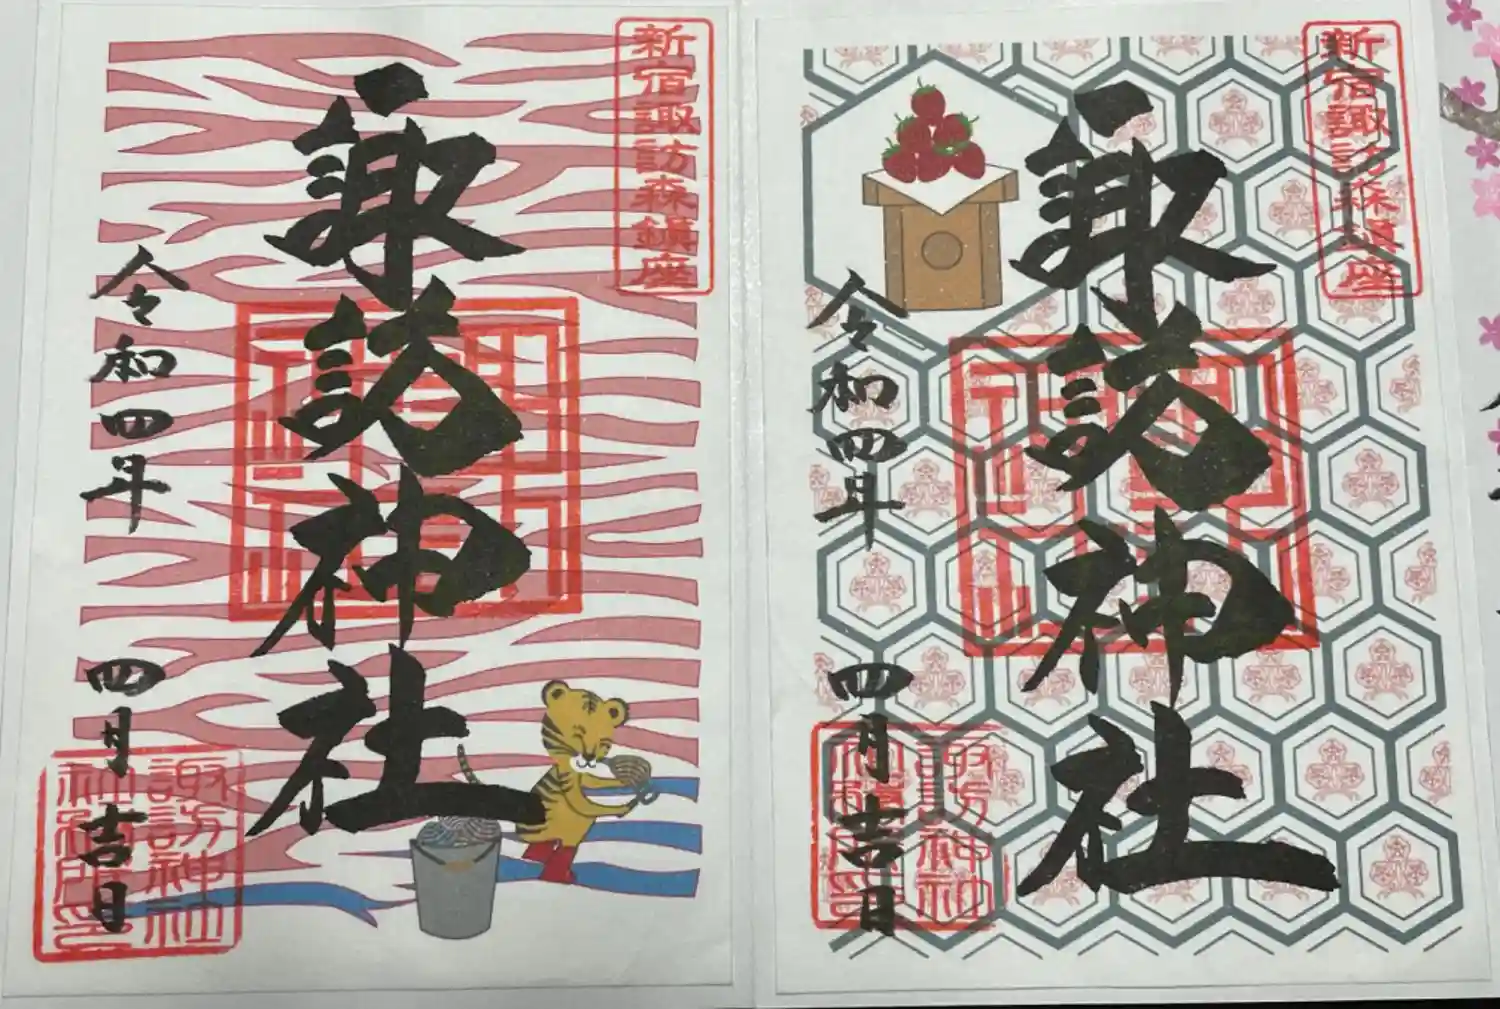 新宿諏訪森鎮座
諏訪神社
令和四年
四月吉日
諏訪神社
新宿諏訪森鎮座
諏訪神社
令和四年
四月吉日
諏訪神社